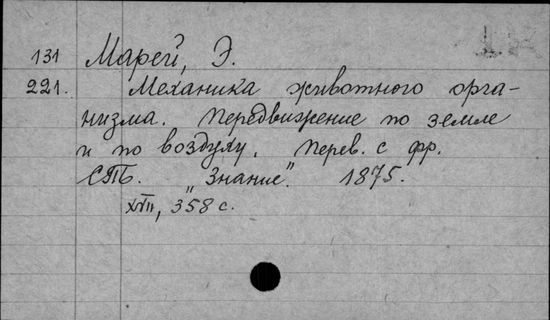 131 Марей, Э.
221. Механика животного орга-
низма. Передвижение по земле
и по воздуху. Перев. с фр.
СПБ. "Знание". 1875.
XVII, 358 с.